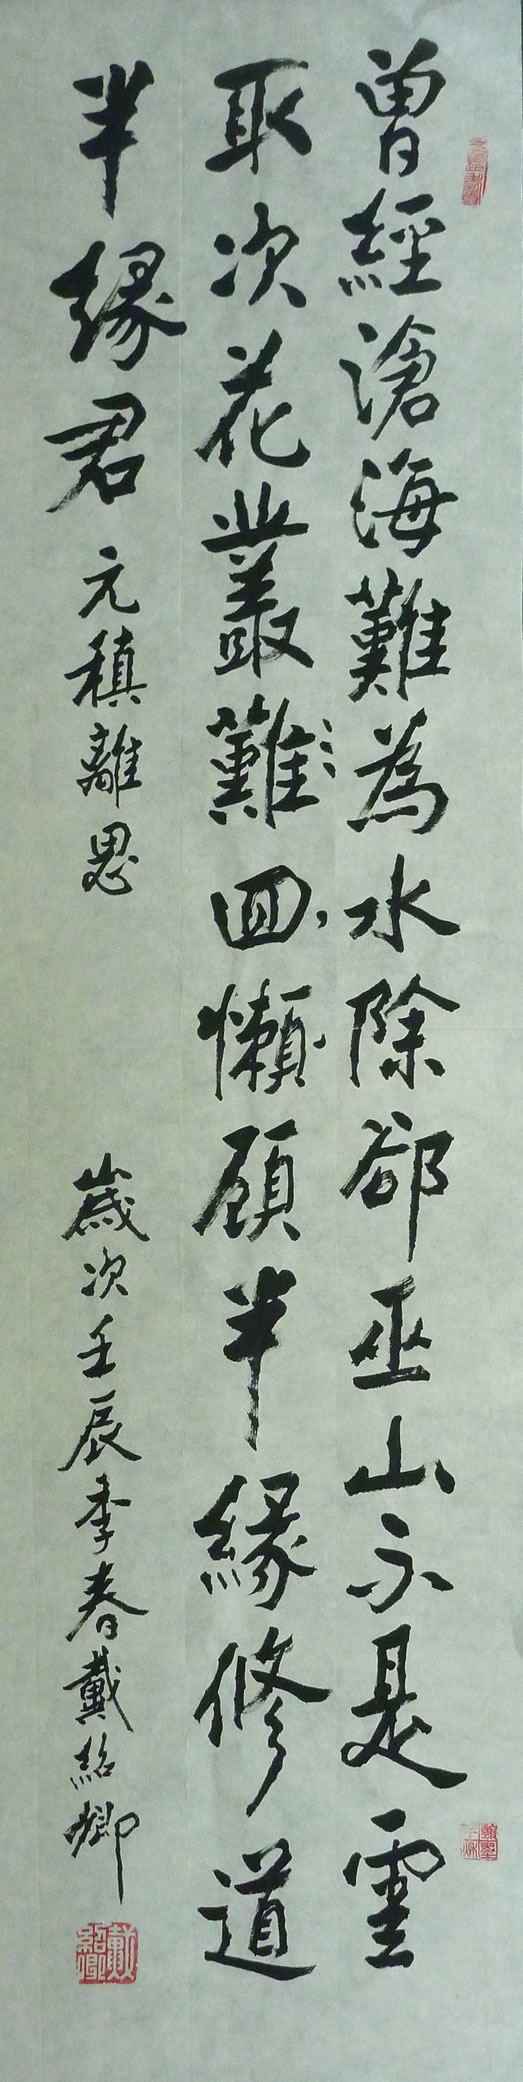 曾經滄海難為水除卻巫山不是雲
取次花叢難回懶顧半緣修道
半緣君 元稹離思 歲次壬辰季春戴紹卿
戴紹卿